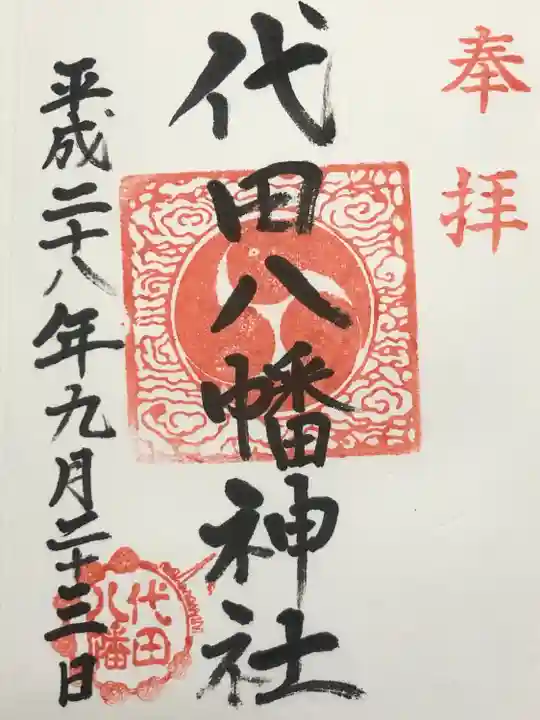 奉拝
代田八幡神社
平成二十八年九月二十三日
代田
八幡